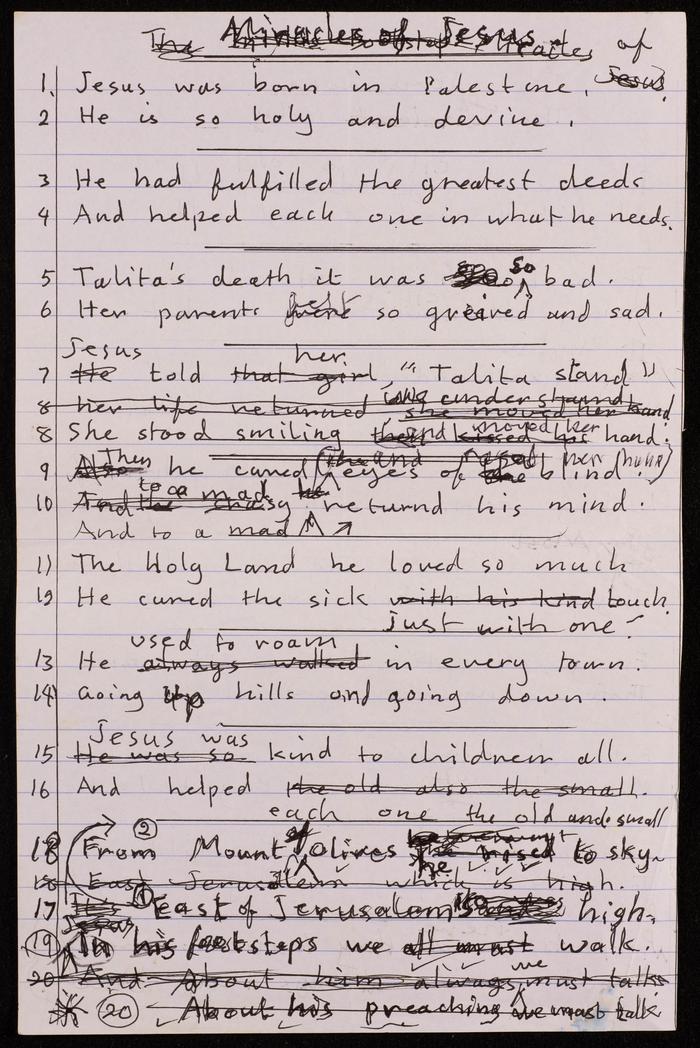 Miracles of Jesus
The of
Jesus
1. Jesus was born in Palestine.
2 He is so holy and devine.
3 He had fulfilled the greatest deeds
4 And helped each one in what he needs.
5 Talita's death it was so so bad.
6 Her parents felt were so greived and sad.
Jesus her
7 He told that girl, "Talita stand"
understand
8 her life returned she moved her hand
moved her
8 She stood smiling and kissed his hand.
Then
9 Also he cured the eyes of blind.
to a mad
10 And the returnd his mind.
And to a mad
11 The Holy Land he loved so much
12 He cured the sick with his kind touch.
just with one
used to roam
13 He always walked in every town.
14 Going up hills and going down.
Jesus was
15 He was so kind to children all.
16 And helped the old also the small.
each one the old and small
2
18 From Mount of Olives he rised to sky.
18 East Jerusalem which is high.
1
17 East of Jerusalem high.
Jesus
19 In his footsteps we all must walk.
we
20 And About him always must talk
20 About his preaching we must talk